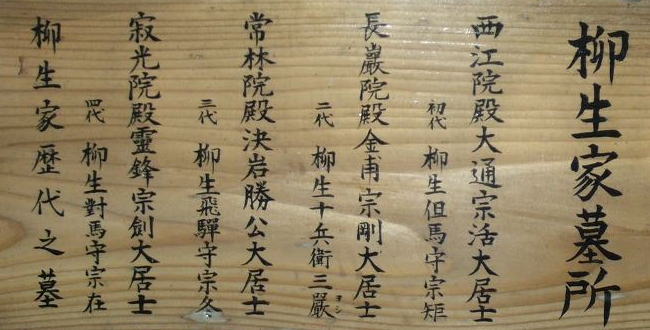 柳生家墓所
西江院殿大通宗活大居士
初代 柳生但馬守宗矩
長巖院殿金甫宗剛大居士
二代 柳生十兵衛三嚴
ヨシ
常林院殿決岩勝公大居士
三代 柳生飛驒守宗冬
寂光院殿靈鋒宗劍大居士
四代 柳生對馬守宗在
柳生家歴代之墓